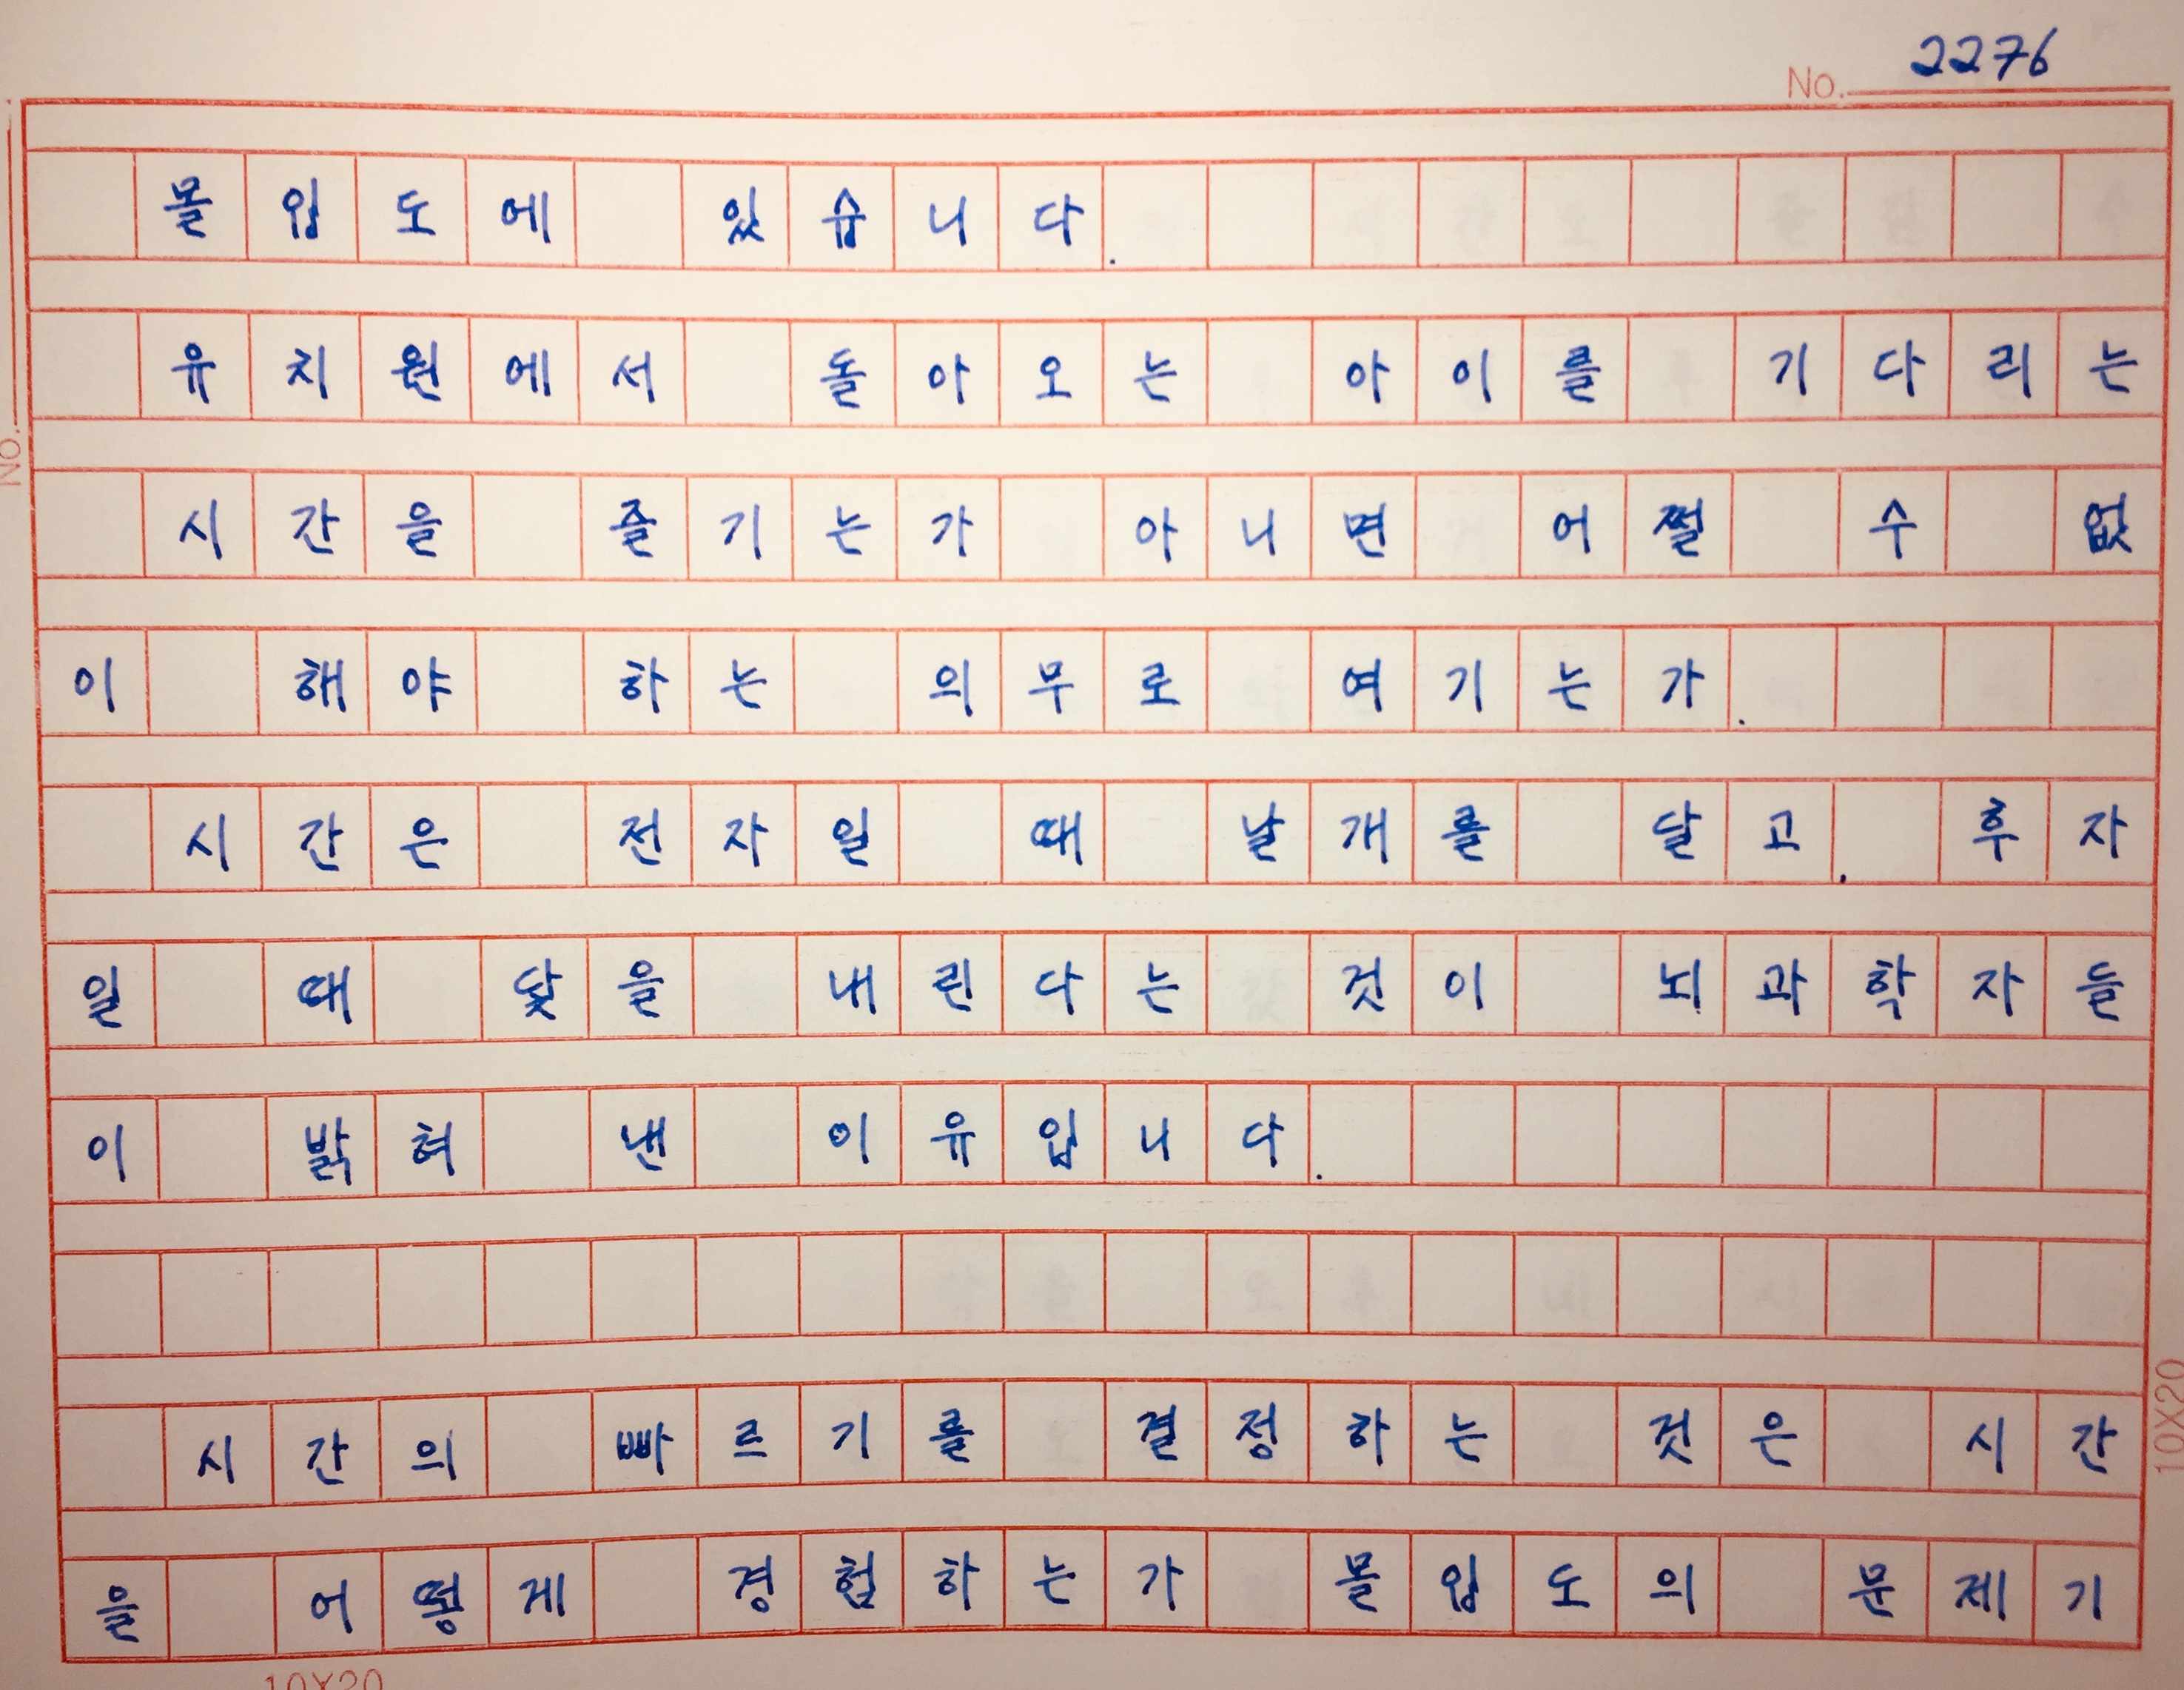 2276
No.
몰입도에 있습니다.
유치원에서 돌아오는 아이를 기다리는
시간을 즐기는가 아니면 어쩔 수 없
이 해야 하는 의무로 여기는가.
시간은 전자일 때 날개를 달고. 후자
일 때 닻을 내린다는 것이 뇌과학자들
이 밝혀 낸 이유입니다.
시간의 빠르기를 결정하는 것은 시간
을 어떻게 경험하는가 몰입도의 문제기
No.
10X20
10X20